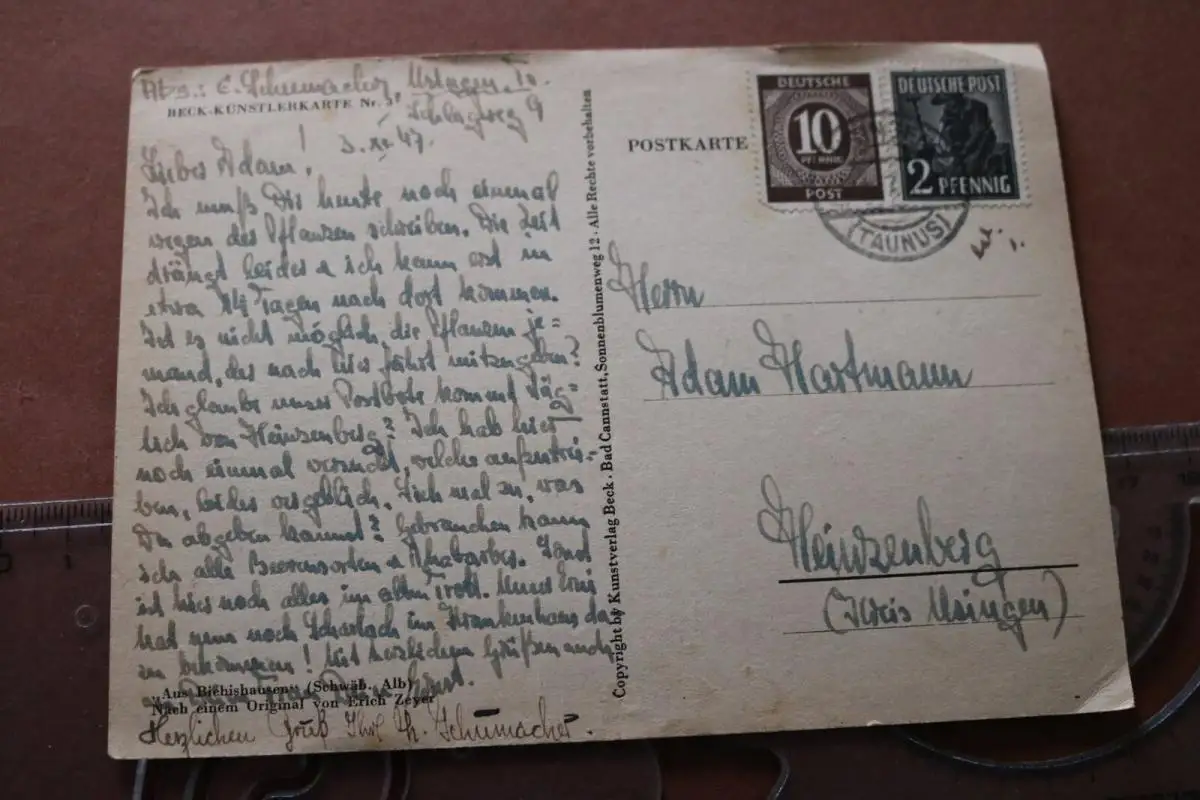 Abs.: E. Schumacher, Usingen Ts.
Schlagweg 9
BECK-KÜNSTLERKARTE Nr. 3
3. XI. 47.
Lieber Adam!
Ich muß Dir heute noch einmal
wegen der Pflanzen schreiben. Die Zeit
drängt leider u ich kann erst in
etwa 14 Tagen nach dort kommen.
Ist es nicht möglich, die Pflanzen je=
mand, der nach hier fährt mitzugeben?
Ich glaube unser Postbote kommt täg=
lich von Heinzenberg? Ich hab hier
noch einmal versucht, welche aufzutrei=
ben, leider vergeblich. Sieh mal zu, was
Du abgeben kannst? Gebrauchen kann
ich alle Beerensorten u Rhabarber. Sonst
ist hier noch alles im alten Trott. Unser
hat nun noch Scharlach im Krankenhaus da
zu bekommen! Mit herzlichen Grüßen auch
Frau Ernst.
„Aus Bichishausen“ (Schwäb. Alb)
Nach einem Original von Erich Zeyer
Herzlichen Gruß Ihre Schumacher.
Copyright by Kunstverlag Beck · Bad Cannstatt, Sonnenblumenweg 12 · Alle Rechte vorbehalten
POSTKARTE
DEUTSCHE
10
PFENNIG
POST
DEUTSCHE POST
2 PFENNIG
(TAUNUS)
Herrn
Adam Hartmann
Heinzenberg
(Kreis Usingen)